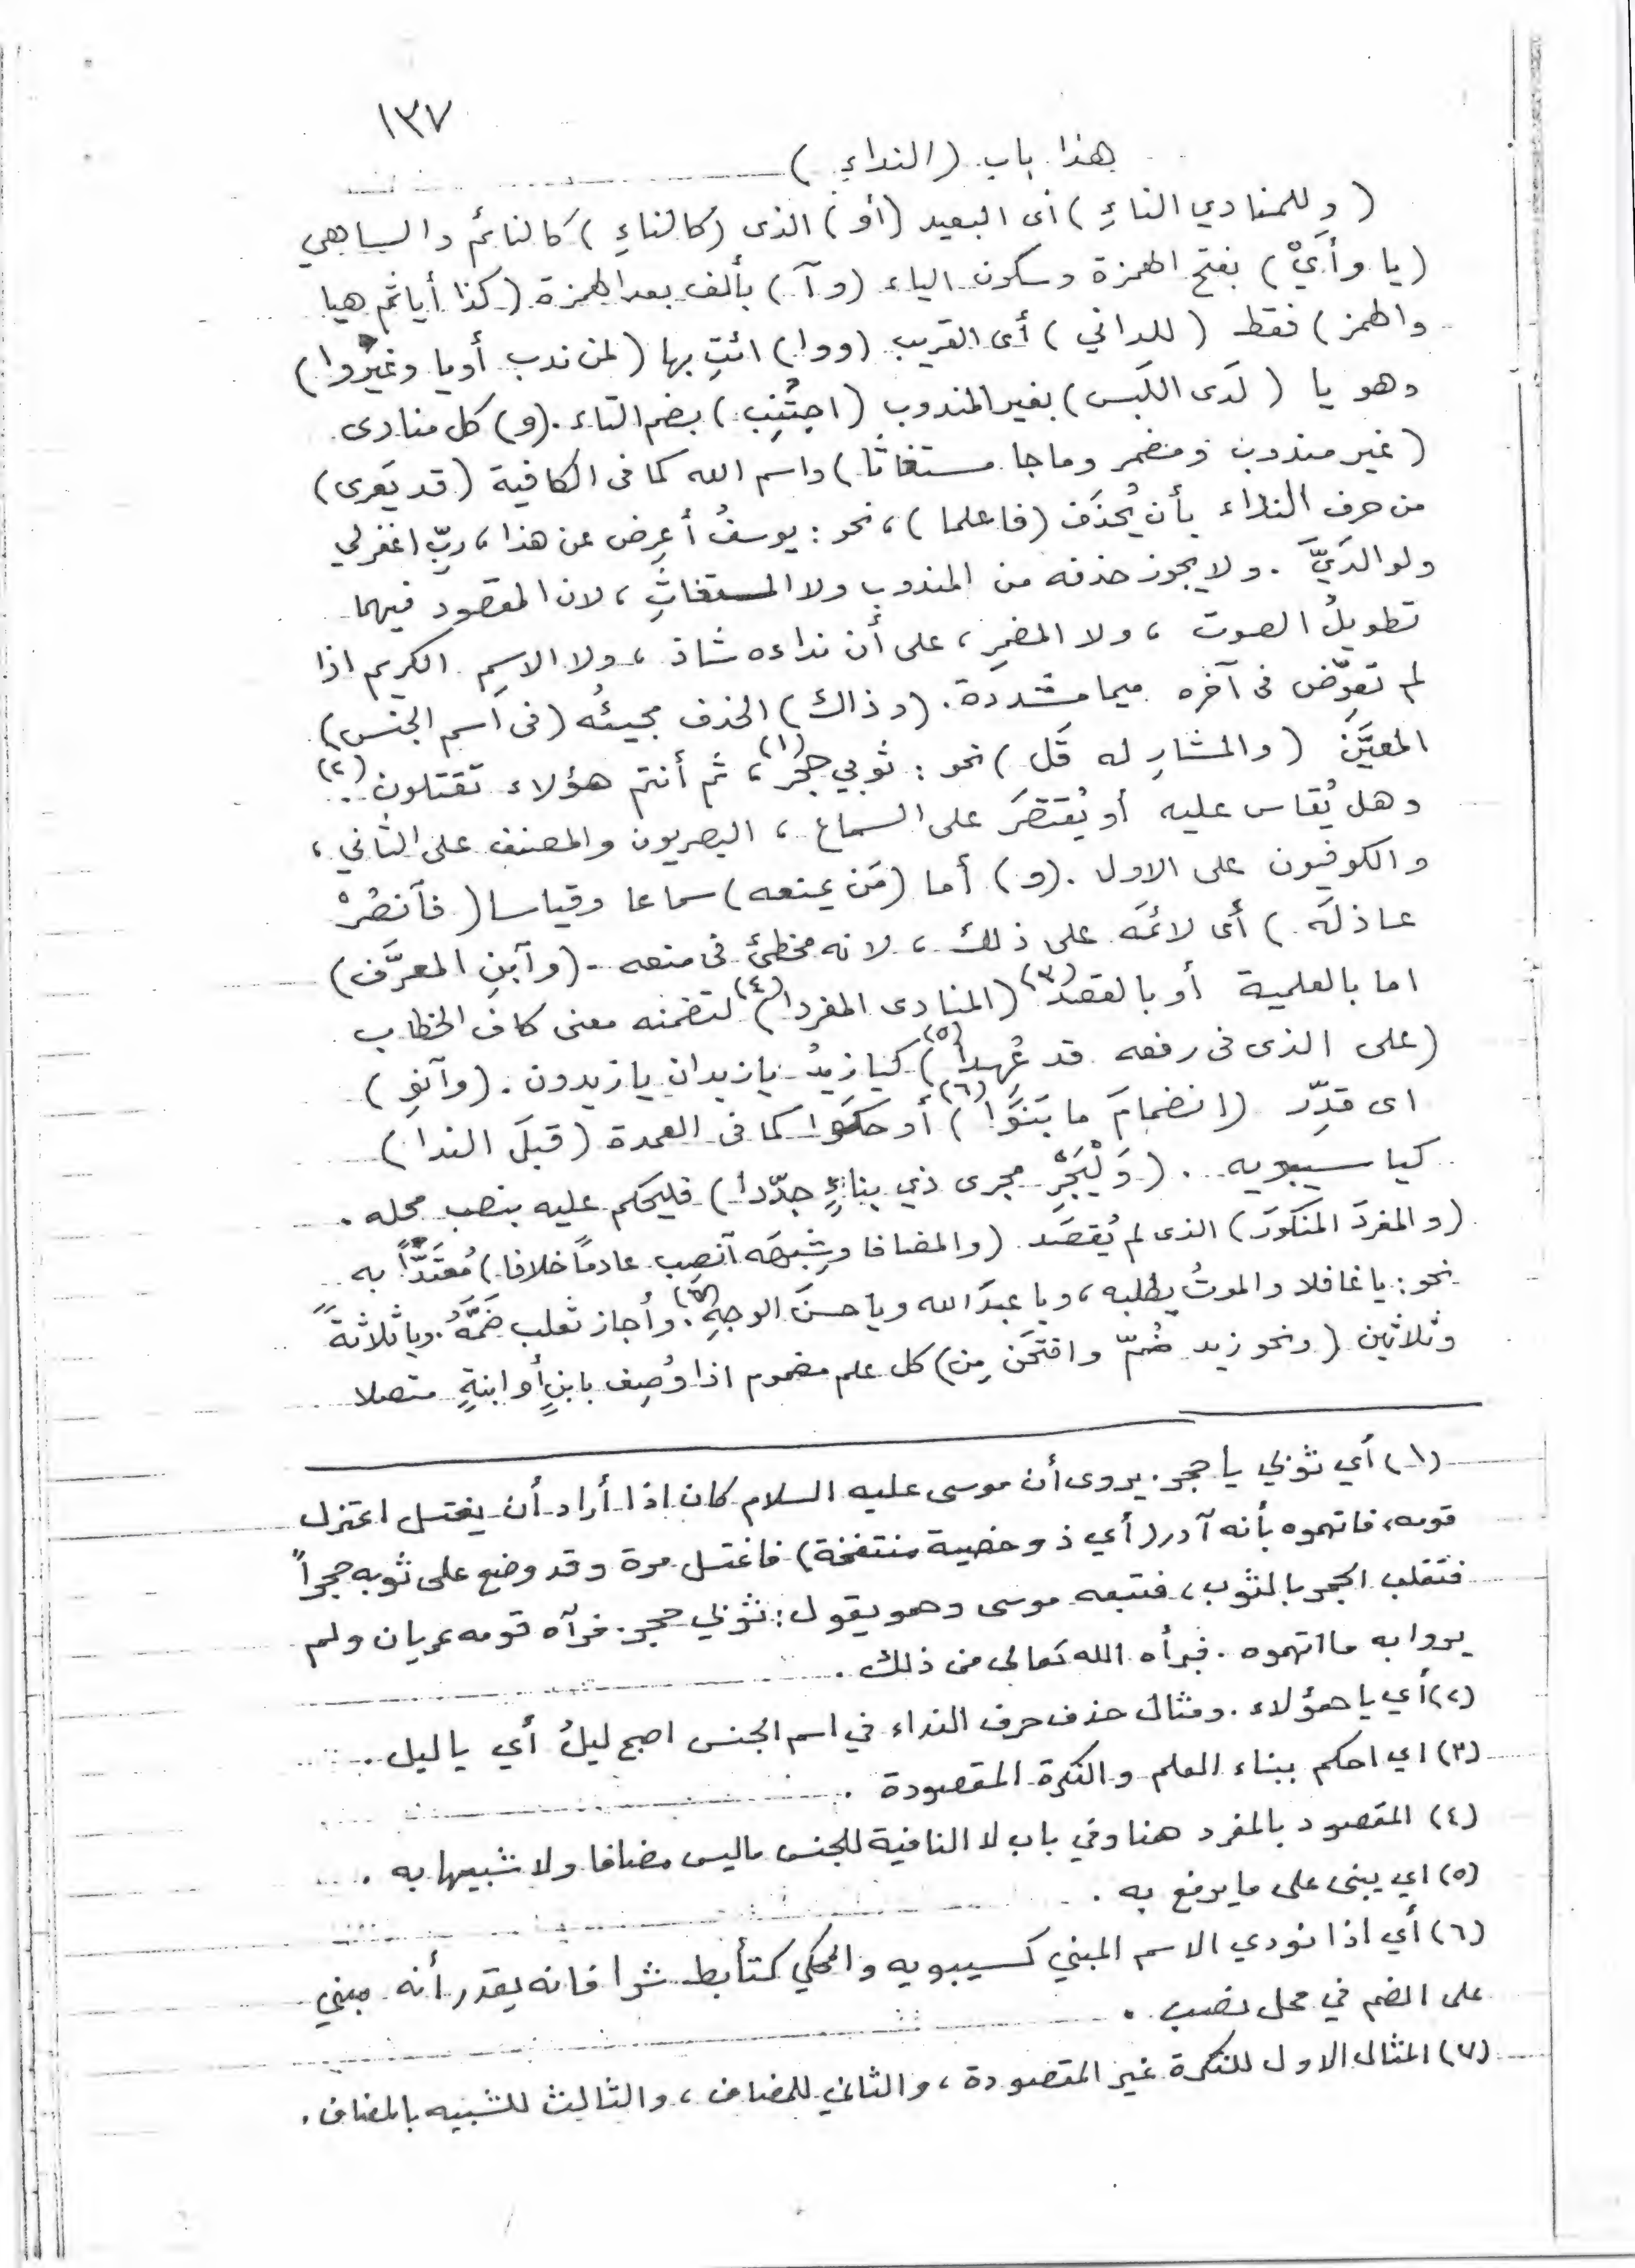 ١٣٧
هذا باب (النداءِ)
(وللمنادي الناءِ) أى البعيد (أو) الذى (كالناءِ) كالنائم والساهي
(يا وأَيْ) بفتح الهمزة وسكون الياء (وآ) بألف بعد الهمزة (كذا أيا ثم هيا
والهمز) فقط (للداني) أى القريب (ووا) ائتِ بها (لمن ندب أو يا وغيرُ وا)
وهو يا (لَدَى اللَبس) بغير المندوب (اجتُنِب) بضم التاء. (و) كل منادى
(غير مندوب ومضمر وما جا مستغاثا) واسم الله كما فى الكافية (قد يَعرى)
من حرف النداء بأن يُحذَف (فاعلما)، نحو: يوسفُ أعرِض عن هذا، ربِّ اغفرلي
ولوالدَيَّ. ولا يجوز حذفه من المندوبِ ولا المستغاثِ، لان المقصود فيهما
تطويلُ الصوت، ولا المضمرِ، على أن نداءه شاذ، ولا الاسمِ الكريم اذا
لم تعوِّض فى آخره ميما مشددة. (وذاك) الحذف مجيئُه (فى اسم الجنس)
المعيَّن (والمشارِ له قَل) نحو: ثوبي حجر(١)، ثم أنتم هؤلاء تقتلون(٢).
وهل يُقاس عليه أو يُقتصَر على السماع، البصريون والمصنف على الثاني،
والكوفيون على الاول. (و) أما (مَن يمنعه) سماعا وقياسا (فآنصُرْ
عاذلَه) أى لائمَه على ذلك، لانه مخطئ فى منعه - (وآبنِ المعرَّف)
اما بالعلمية أو بالقصد(٣) (المنادى المفردا)(٤) لتضمنه معنى كاف الخطاب
(على الذى فى رفعه قد عُهِدا)(٥) كيا زيدُ يا زيدان يا زيدون. (وآنوِ)
اى قدِّر (انضمامَ ما بَنَوا)(٦) أو حكَوا كما فى العمدة (قبلَ الندا)
كيا سيبويه. (وَلْيُجْرَ مجرى ذي بناءٍ جدّدا) فليحكم عليه بنصب محله.
(والمفردَ المنكورَ) الذى لم يُقصَد (والمضافا وشِبهَه آنصِب عادماً خلافا) مُعتَدّاً به
نحو: يا غافلا والموتُ يطلبه، ويا عبدَ الله ويا حسنَ الوجهِ(٧). وأجاز ثعلب ضَمَّهُ. ويا ثلاثةً
وثلاثين (ونحو زيد ضُمّ وافتحَن مِن) كل علم مضموم اذا وُصِف بابنٍ أو ابنةٍ متصلا
(١) أي ثوبي يا حجر. يروى أن موسى عليه السلام كان اذا أراد أن يغتسل اعتزل
قومه، فاتهموه بأنه آدر (أي ذو خصية منتفخة) فاغتسل مرة وقد وضع على ثوبه حجراً
فتقلب الحجر بالثوب، فتبعه موسى وهو يقول: ثوبي حجر. فرآه قومه عريان ولم
يروا به ما اتهموه. فبرأه الله تعالى من ذلك.
(٢) أي يا هؤلاء. ومثال حذف حرف النداء في اسم الجنس اصبح ليلُ أي يا ليل.
(٣) اي احكم ببناء العلم والنكرة المقصودة.
(٤) المقصود بالمفرد هنا وفي باب لا النافية للجنس ماليس مضافا ولا شبيها به.
(٥) اي يبنى على ما يرفع به.
(٦) أي اذا نودي الاسم المبني كسيبويه والمحكي كتأبط شرا فانه يقدر أنه مبني
على الضم في محل نصب.
(٧) المثال الاول للنكرة غير المقصودة، والثاني للمضاف، والثالث للشبيه بالمضاف.